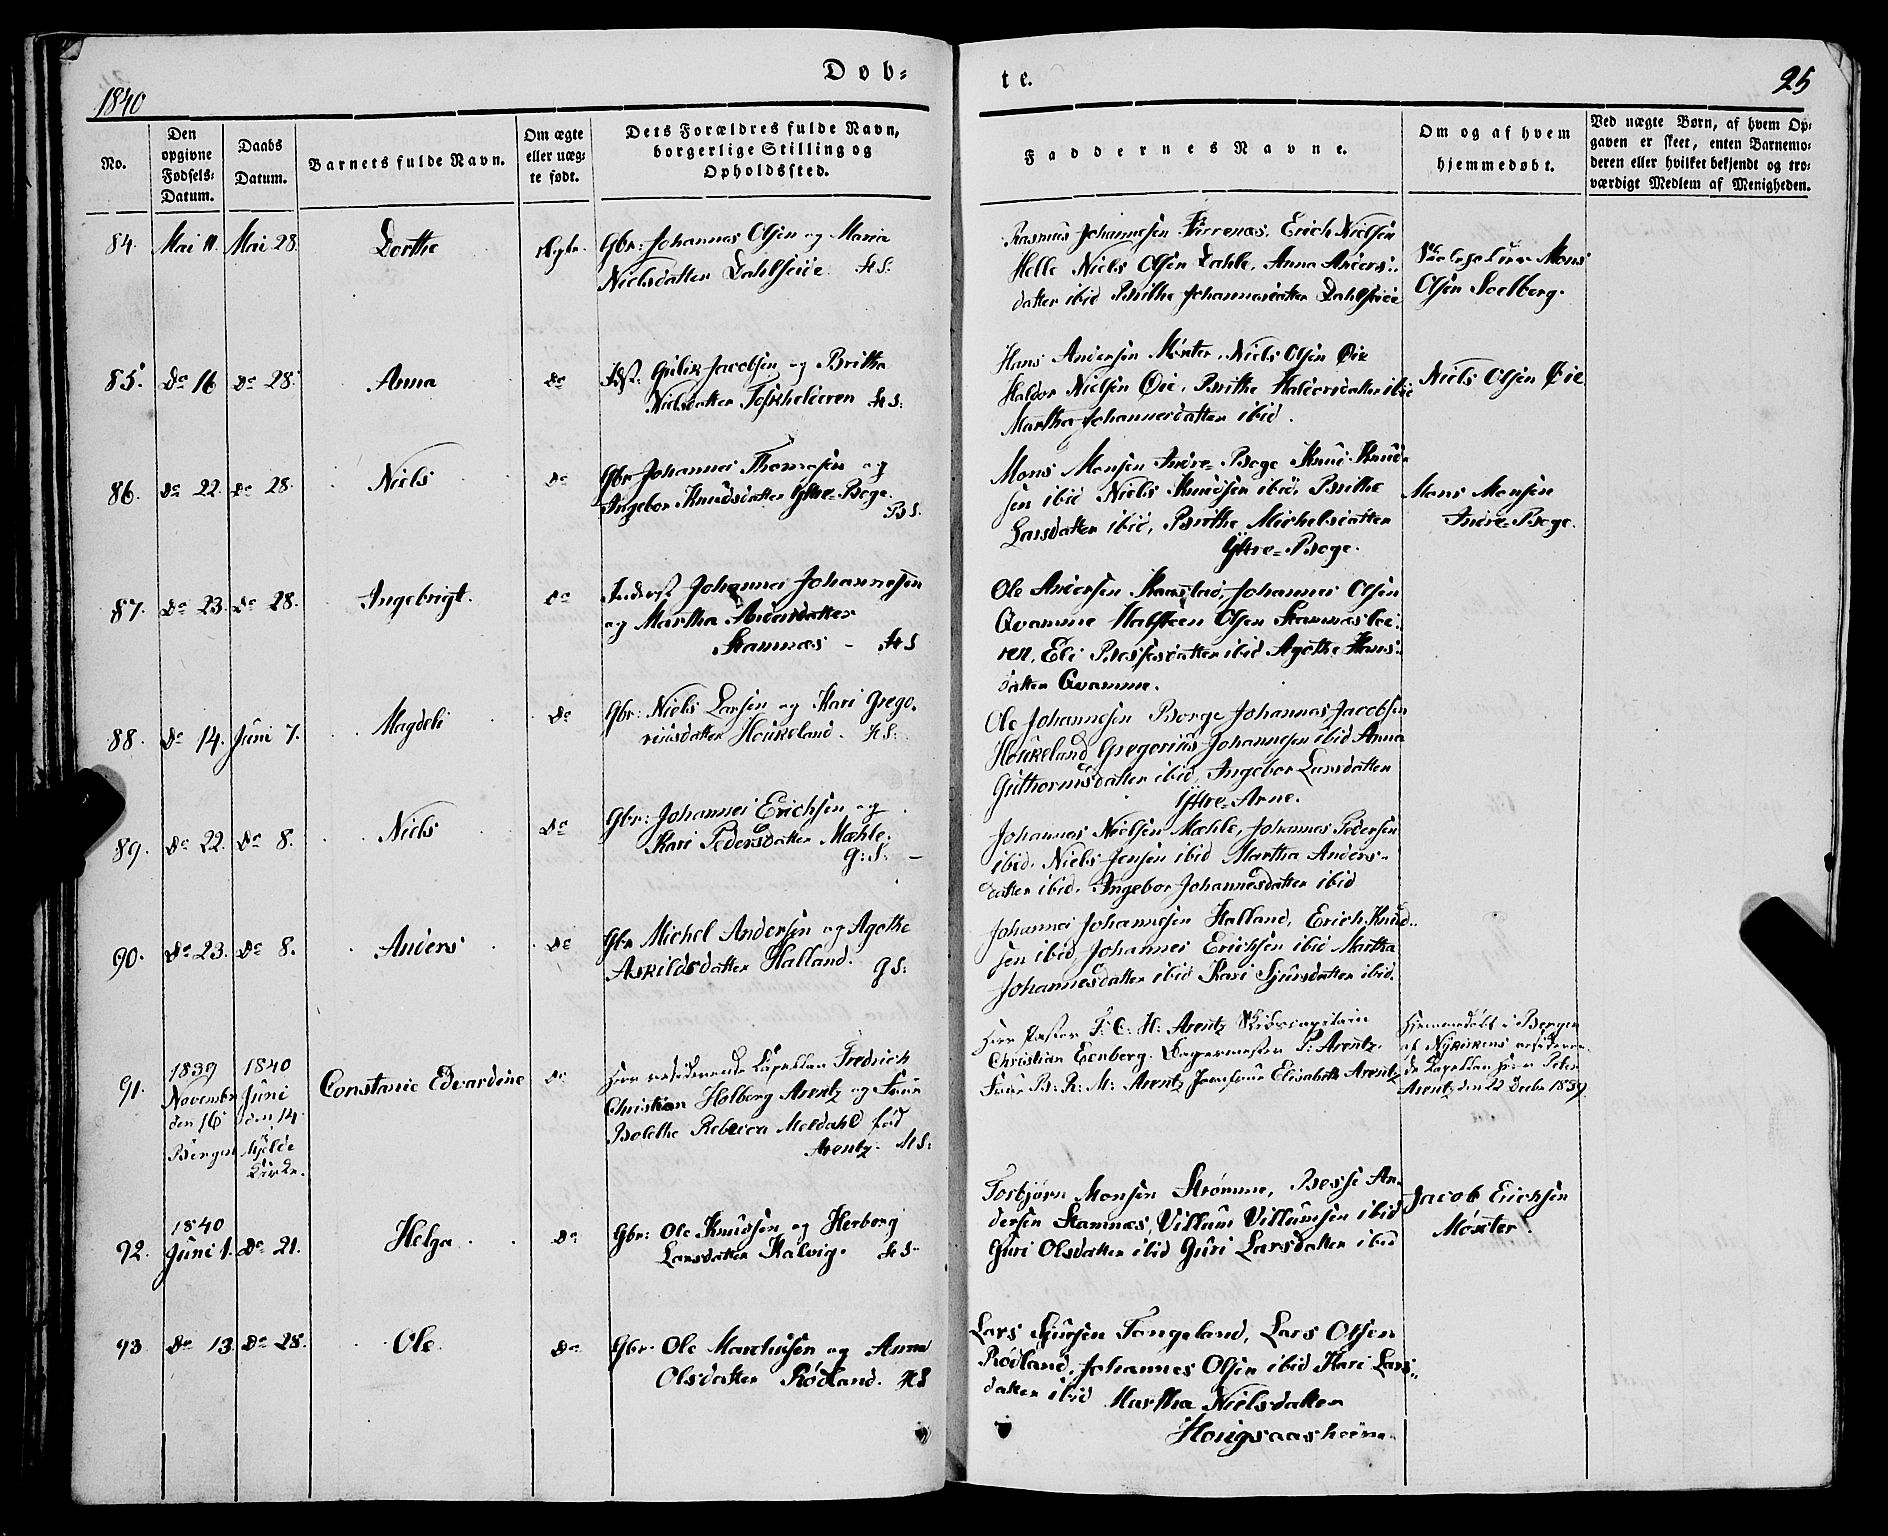 1840
Døb-
te.
25
No.
Den opgivne Fødsels-Datum.
Daabs Datum.
Barnets fulde Navn.
Om ægte eller uæg-te født.
Dets Forældres fulde Navn, borgerlige Stilling og Opholdssted.
Faddernes Navne.
Om og af hvem hjemmedøbt.
Ved uægte Børn, af hvem Op-gaven er skeet, enten Barnemo-deren eller hvilket bekjendt og tro-værdigt Medlem af Menigheden.
84. Mai 11. Mai 28. Dorthe
Gbr: Johannes Olsen og Maria
Nielsdatter Dahlseiie. H S.
Rasmus Johannesen Birrenæs, Erich Nielsen
Helle Niels Olsen Dahle, Anna Anders-
datter ibid Brithe Johannesdatter Dahlseiie
Mons
Olsen Soelberg.
85. Do 16 Do 28. Anna Do
Jacobsen og Brithe
Nielsdatter H S.
Hans Andersen Mønter, Niels Olsen Øie
Haldor Nielsen Øie, Brithe Haldorsdatter ibid
Martha Johannesdatter ibid.
Niels Olsen Øie
86. Do 22. Do 28. Niels Do
Gbr Johannes Thomesen og
Ingebor Knudsdatter Yttre-Boge.
B S.
Mons Monsen Indre-Boge Knud Knud-
sen ibid Niels Knudsen ibid, Brithe
Larsdatter ibid, Brithe Michelsdatter
Yttre-Boge.
Mons Monsen
Indre-Boge.
87. Do 23. Do 28. Ingebrigt. Do
Inderst Johannes Johannesen
og Martha Andersdatter
Stamnæs - H S
Ole Andersen Johannes Olsen
Qvamme Halsteen Olsen Stamnæslei-
ren, Eli Bessesdatter ibid Agathe Hans-
datter Qvamme.
88. Do 14. Juni 7. Magdeli Do
Gbr: Niels Larsen og Kari Grego-
riusdatter Houkeland. H S.
Ole Johannesen Borge Johannes Jacobsen
Houkeland Gregorius Johannesen ibid Anna
Guthormsdatter ibid, Ingebor Larsdatter
Yttre-Arne.
89. Do 22. Do 8. Niels Do
Gbr: Johannes Erichsen og
Kari Pedersdatter Mæhle.
G: S: -
Johannes Nielsen Mæhle, Johannes Pedersen
ibid. Niels Jensen ibid Martha Anders-
datter ibid. Ingebor Johannesdatter ibid
90. Do 23. Do 8. Anders Do
Gbr Michel Andersen og Agathe
Askildsdatter Halland. G S.
Johannes Johannesen Halland, Erich Knud-
sen ibid, Johannes Erichsen ibid Martha
Johannesdatter ibid Kari Sjursdatter ibid.
91.
1839
Novembr
den 16
Bergen
1840
Juni
den 14
Mjelde
Kirke.
Constanie Edvardine Do
Herr residerende Capellan Fredrich
Christian Holberg Arentz og Frue
Bolethe Rebecca Meldahl fød
Arentz. H S:
Herr Pastor F: C: H: Arentz Skibscapitain
Christian Eenberg. P: Arentz.
Frue B: R: M: Arentz Jomfrue Elisabeth Arentz
Hjemmedøbt i Bergen
af Nykirkens resideren-
de Capellan Herr Peter
Arentz den 22 Decbr 1839.
92.
1840
Juni 1. Do 21. Helga Do
Gbr: Ole Knudsen og Herborg
Larsdatter Kalvig. H S.
Torbjørn Monsen Strømme, Besse An-
dersen Stamnæs, Villum Villumsen ibid
Guri Olsdatter ibid Guri Larsdatter ibid
Jacob Erichsen
Mønter
93 Do 13 Do 28. Ole. Do
Gbr. Ole Marchusen og Anna
Olsdatter Rødland. H S
Lars Sjursen Tangeland, Lars Olsen
Rødland, Johannes Olsen ibid Kari Lars-
datter ibid Martha Nielsdatter